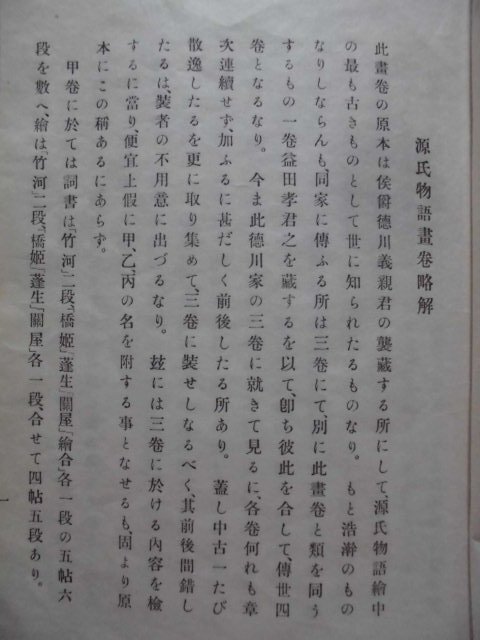 源氏物語畫卷略解
此畫卷の原本は侯爵德川義親君の襲藏する所にして、源氏物語繪中
の最も古きものとして世に知られたるものなり。もと浩瀚のもの
なりしならんも、同家に傳ふる所は三卷にて、別に此畫卷と類を同う
するもの一卷益田孝君之を藏するを以て、卽ち彼此を合して、傳世四
卷となるなり。今ま此德川家の三卷に就きて見るに、各卷何れも章
次連續せず、加ふるに甚だしく前後したる所あり。蓋し中古一たび
散逸したるを更に取り集めて、三卷に裝せしなるべく、其前後間錯し
たるは、裝者の不用意に出づるなり。玆には三卷に於ける內容を檢
するに當り、便宜上假に甲、乙、丙の名を附する事となせるも、固より原
本にこの稱あるにあらず。
甲卷に於ては詞書は「竹河」二段、「橋姬」「蓬生」「關屋」「繪合」各一段の五帖六
段を數へ、繪は「竹河」二段、「橋姬」「蓬生」「關屋」各一段、合せて四帖五段あり。
一